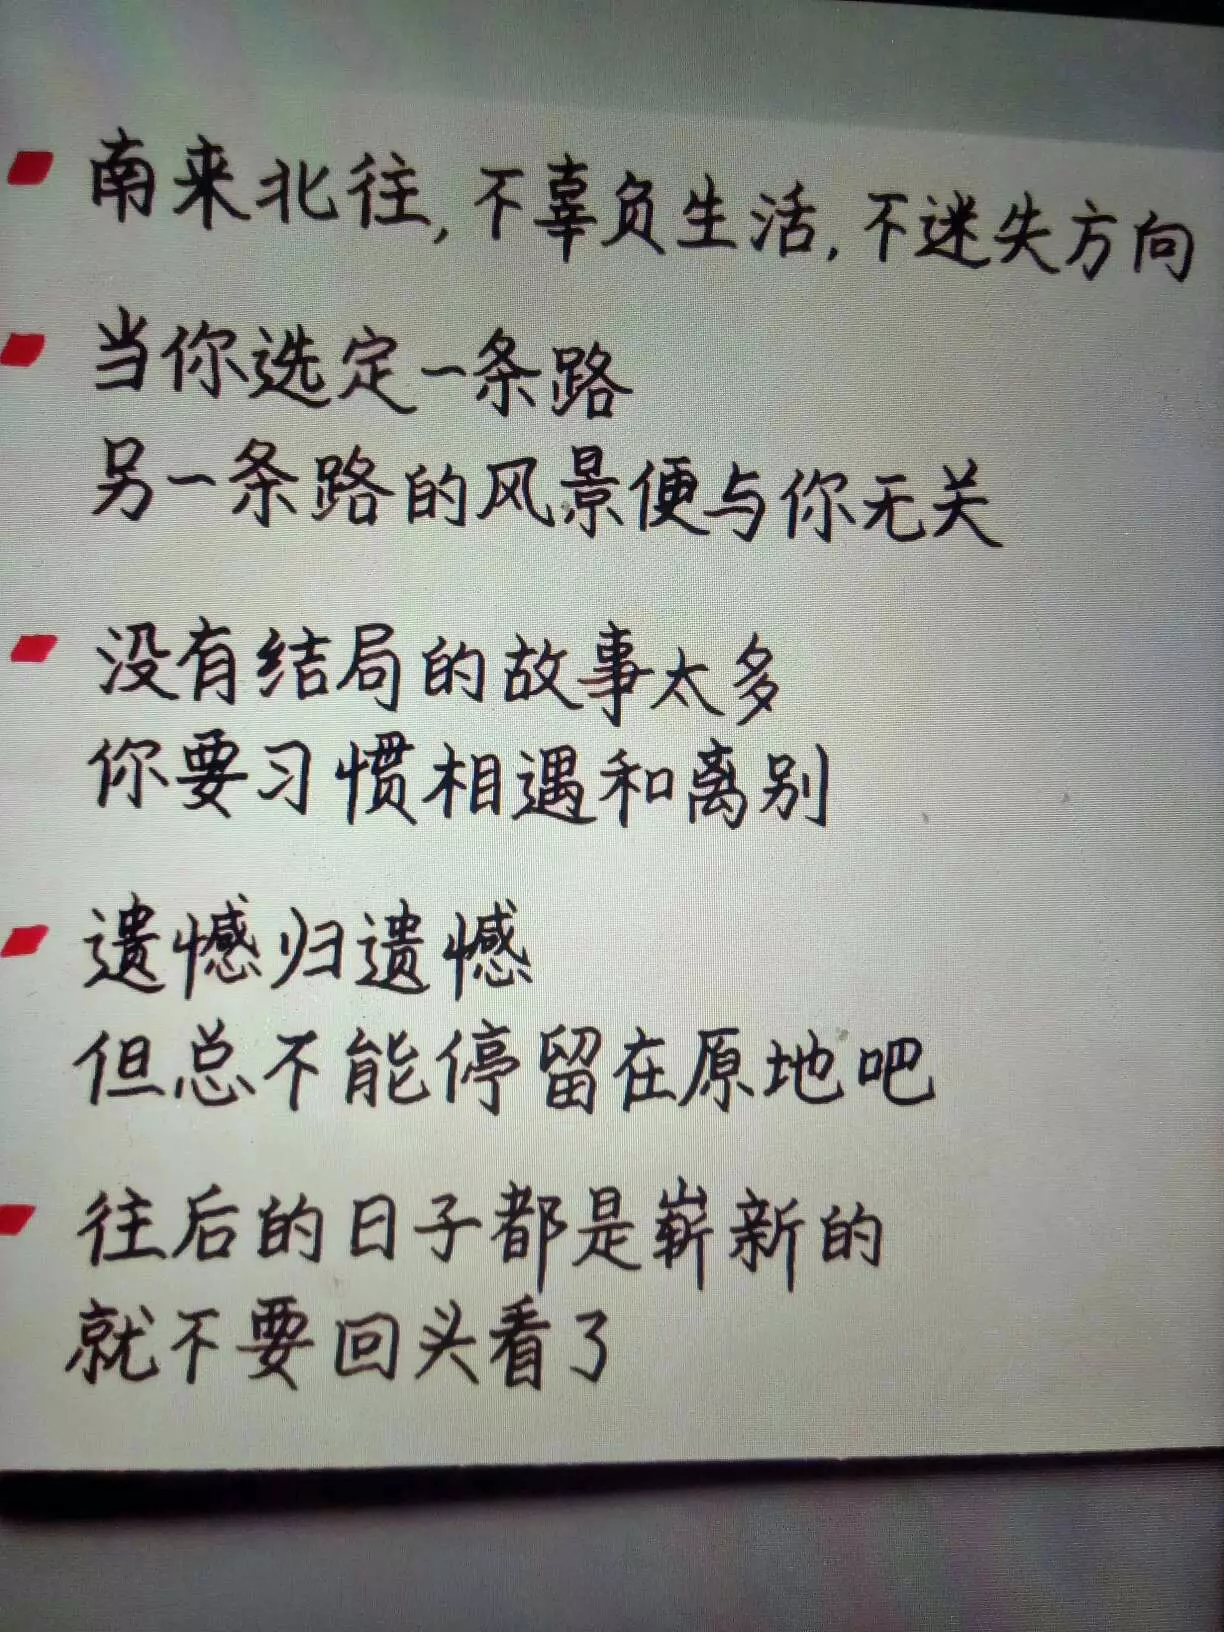 南来北往,不辜负生活,不迷失方向
当你选定一条路
另一条路的风景便与你无关
没有结局的故事太多
你要习惯相遇和离别
遗憾归遗憾
但总不能停留在原地吧
往后的日子都是崭新的
就不要回头看了